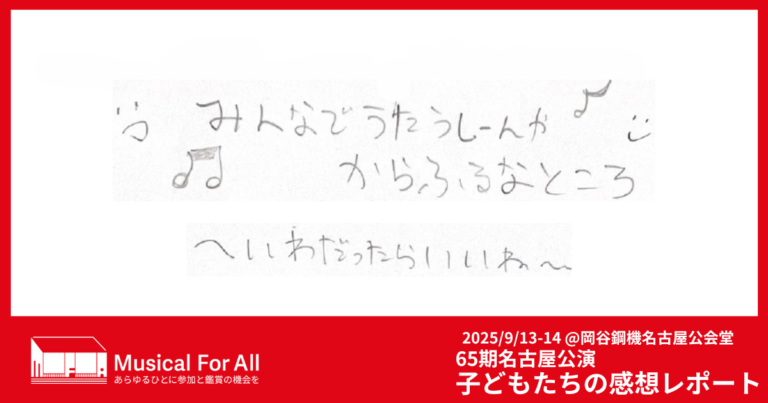 みんなでうたうしーんか
からふるなところ
へいわだったらいいね〜
2025/9/13-14 @岡谷鋼機名古屋公会堂
65期名古屋公演
子どもたちの感想レポート
Musical For All
あらゆるひとに参加と鑑賞の機会を